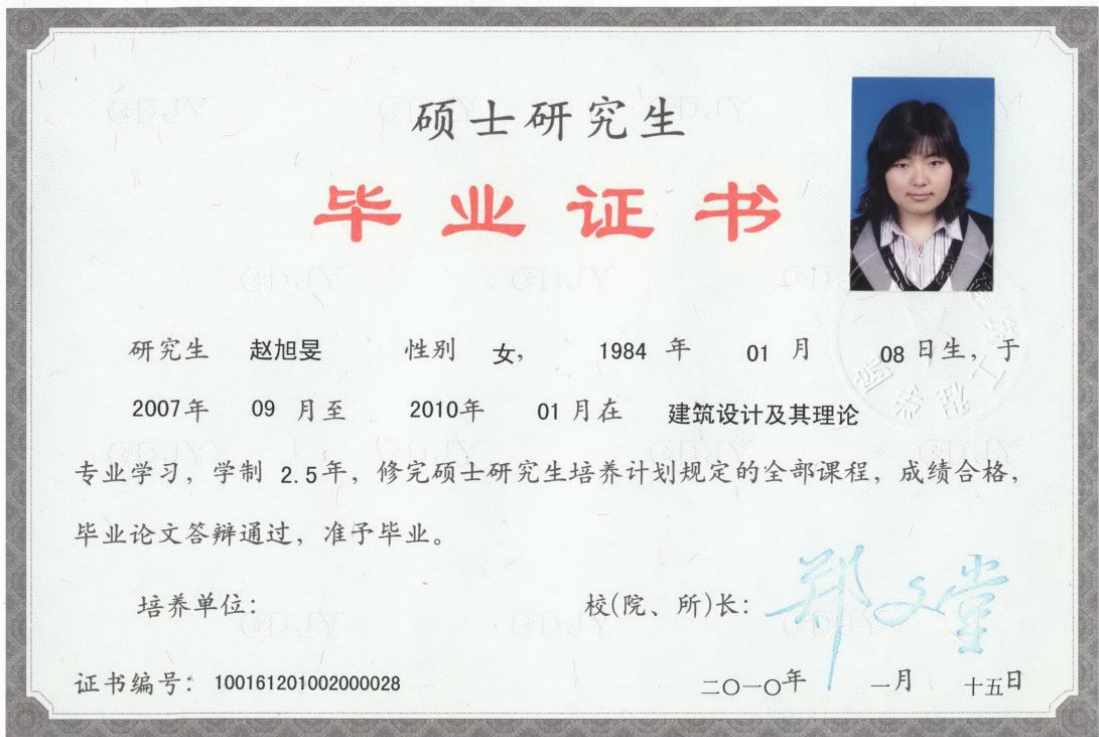 硕士研究生
毕业证书
研究生 赵旭旻 性别 女, 1984 年 01 月 08 日生, 于
2007年 09 月至 2010年 01 月在 建筑设计及其理论
专业学习, 学制 2.5年, 修完硕士研究生培养计划规定的全部课程, 成绩合格,
毕业论文答辩通过, 准予毕业。
培养单位: 校(院、所)长: 郑文堂
证书编号: 100161201002000028 二〇一〇年 一月 十五日